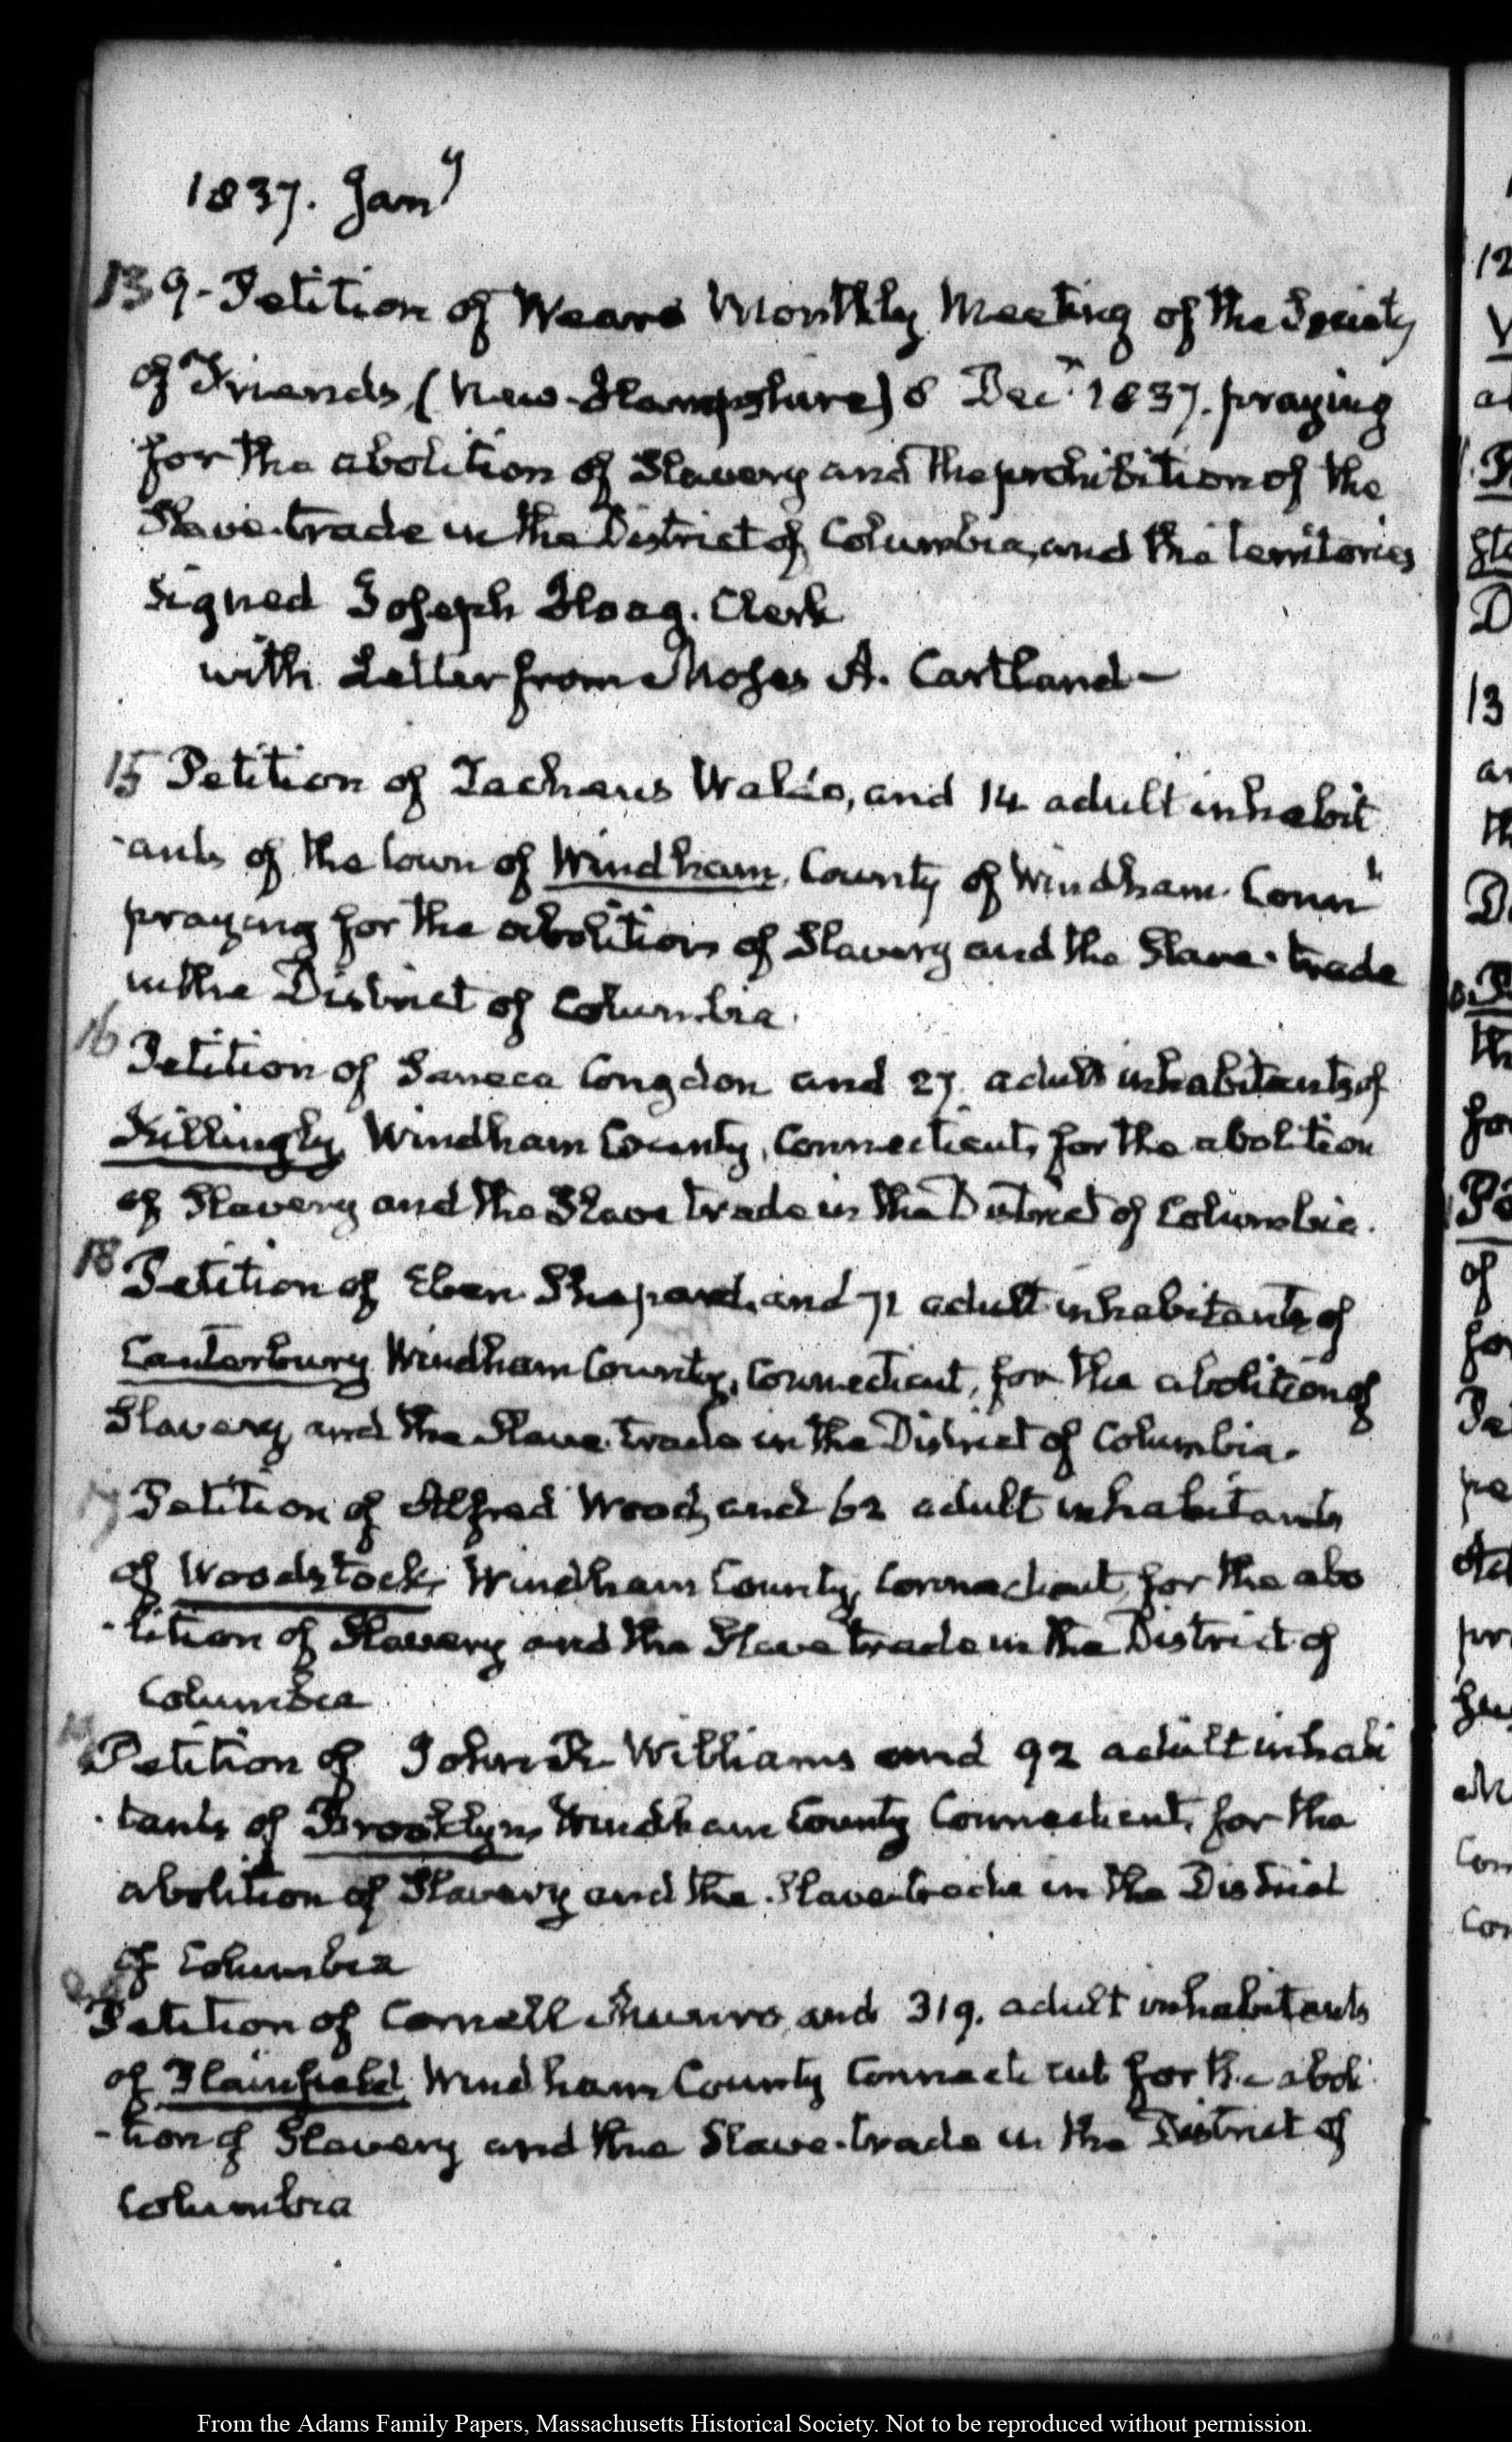 1837. Jany
13 9 - Petition of Weare Monthly Meeting of the Society
of Friends, (New-Hampshire) 8 Decr. 1837. praying
for the abolition of Slavery and the prohibition of the
Slave-trade in the District of Columbia, and the territories
signed Joseph Hoag. Clerk
with Letter from Moses A. Cartland-
15 Petition of Zacheus Waldo, and 14 adult inhabit
-ants of the town of Windham, County of Windham. Connt
praying for the abolition of Slavery and the Slave-trade
in the District of Columbia.
16
Petition of Seneca Congdon and 27 adult inhabitants of
Killingly, Windham County, Connecticut, for the abolition
of Slavery and the Slave trade in the District of Columbia.
18
Petition of Eben Shepard, and 71 adult inhabitants of
Canterbury Windham County, Connecticut, for the abolition of
Slavery, and the Slave trade in the District of Columbia.
17 Petition of Alfred Wood, and 62 adult inhabitants
of Woodstock, Windham County, Connecticut, for the abo
-lition of Slavery and the Slave trade in the District of
Columbia
Petition of John Williams and 92 adult inhabi
-tants of Brooklyn, Windham County Connecticut, for the
abolition of Slavery and the Slave-trade in the District
of Columbia
Petition of Cornell Munro, and 319. adult inhabitants
of Plainfield, Windham County Connecticut for the aboli
-tion of Slavery and the Slave-trade in the District of
Columbia
From the Adams Family Papers, Massachusetts Historical Society. Not to be reproduced without permission.